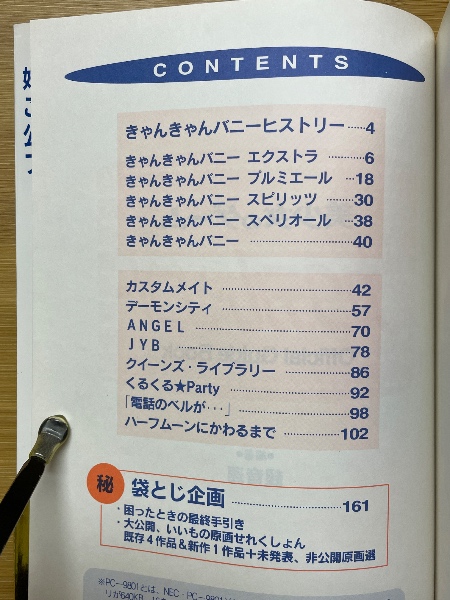 CONTENTS
きゃんきゃんバニーヒストリー……4
きゃんきゃんバニー エクストラ ……6
きゃんきゃんバニー プルミエール …18
きゃんきゃんバニー スピリッツ ………30
きゃんきゃんバニー スペリオール …38
きゃんきゃんバニー ………………………40
カスタムメイト ………………………42
デーモンシティ ………………………57
ANGEL ………………………70
JYB ………………………78
クイーンズ・ライブラリー ……………86
くるくる★Party ………………………92
「電話のベルが・・・」 ………………………98
ハーフムーンにかわるまで ……………102
秘 袋とじ企画 ………………………161
・困ったときの最終手引き
・大公開、いいもの原画せれくしょん
既存4作品&新作1作品+未発表、非公開原画選
※PC-9801とは、NEC・PC-9801